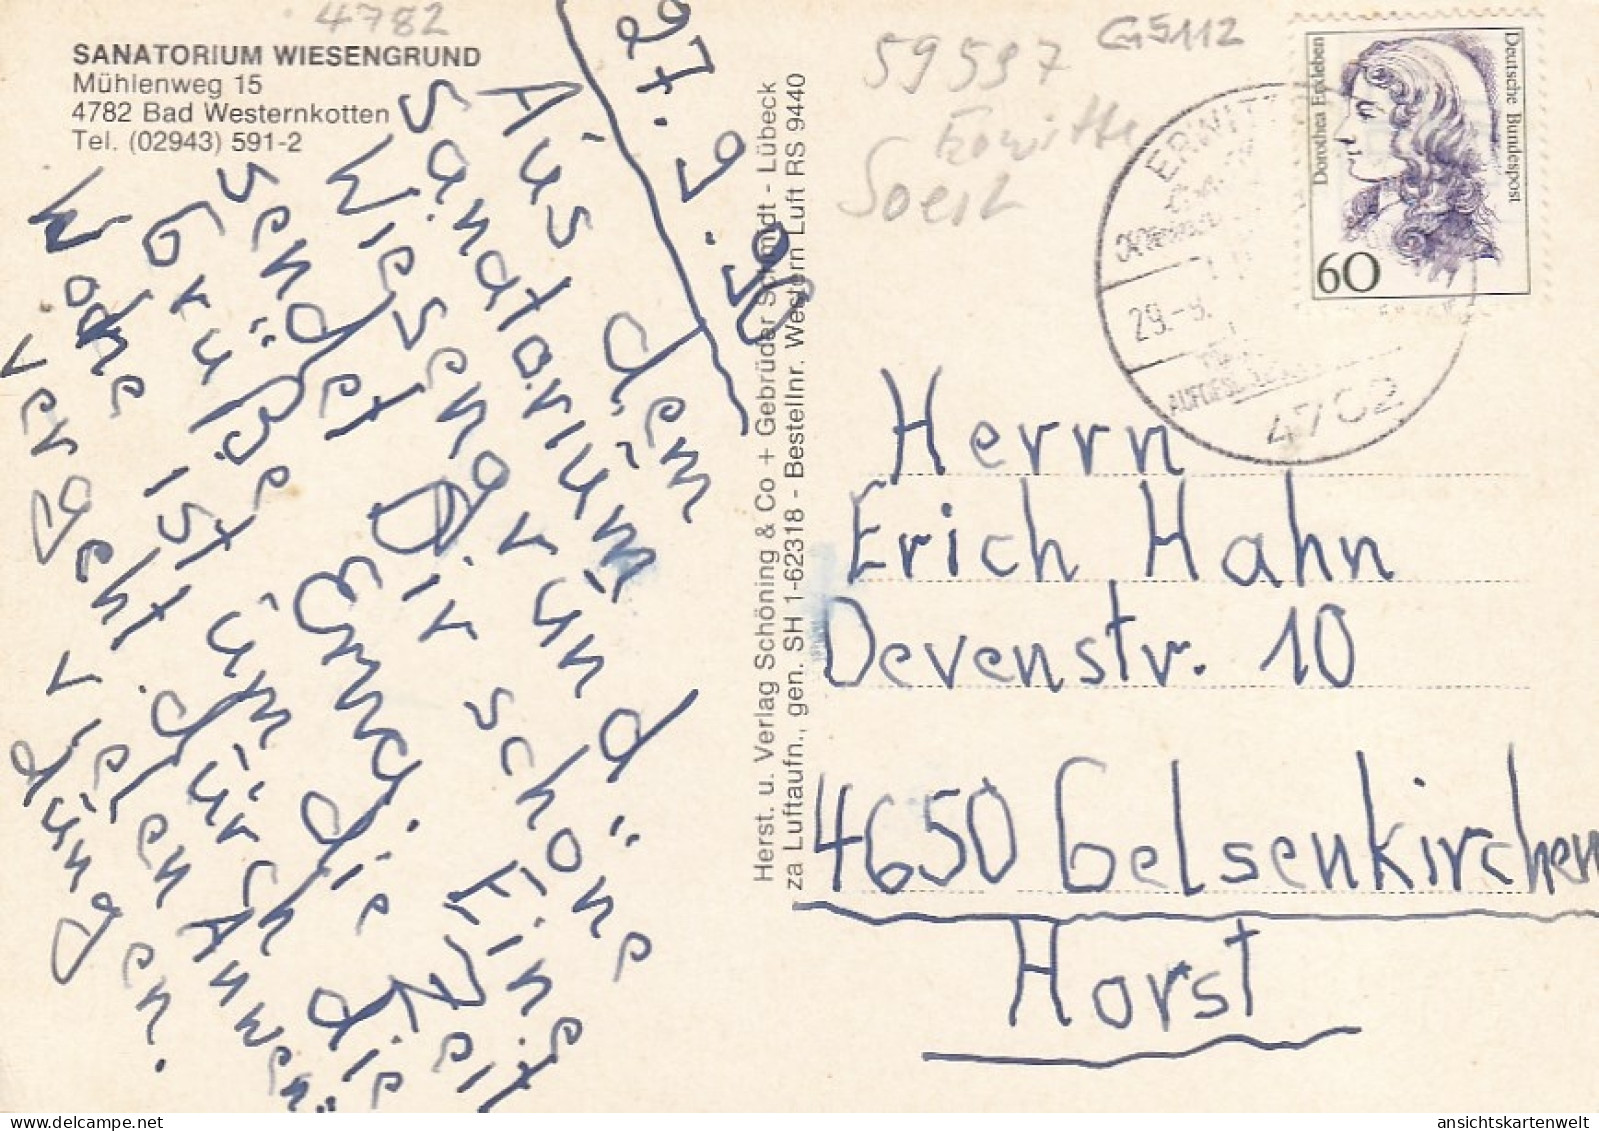 4782
SANATORIUM WIESENGRUND
Mühlenweg 15
4782 Bad Westernkotten
Tel. (02943) 591-2
27.9.90
Aus dem
Sanatorium
Wiesengrund
sendet Dir schöne
Grüße Emmi. Eine
Woche ist um, die Zeit
vergeht durch die
vielen Anwen-
dungen.
Herst. u. Verlag Schöning & Co + Gebrüder Schmidt - Lübeck
za Luftaufn., gen. SH 1-62318 - Bestellnr. Western Luft RS 9440
59597
Erwitte
Soest
G5112
Deutsche Bundespost
Dorothea Erxleben
60
ERWITTE
29.-9.
Herrn
Erich Hahn
Devenstr. 10
4650 Gelsenkirchen
Horst
ansichtskartenwelt